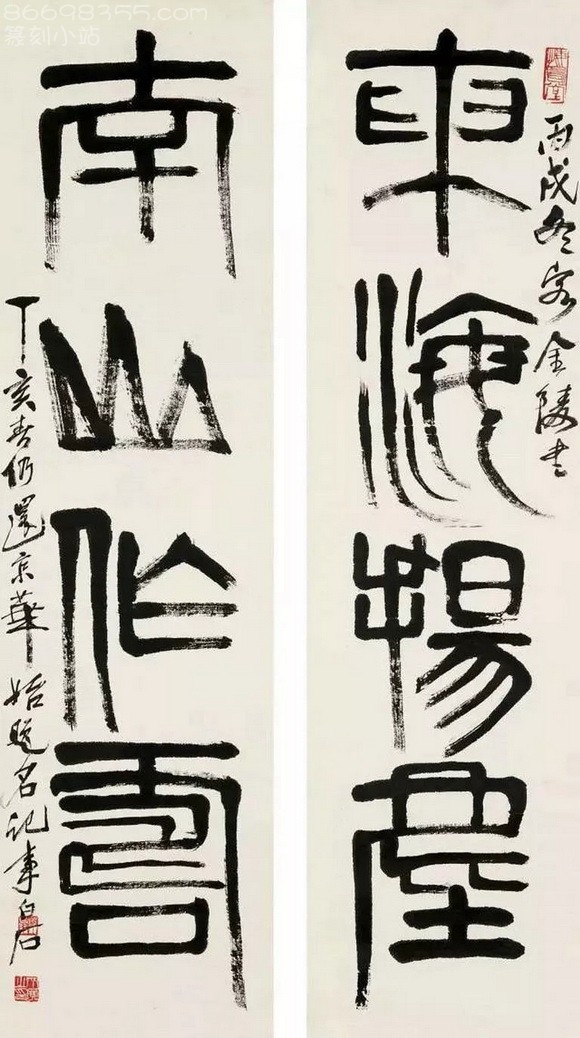 86698355.com
篆刻小站
東海揚塵
丙戌冬客金陵書
南山作壽
丁亥春仍還京華始題名記事白石